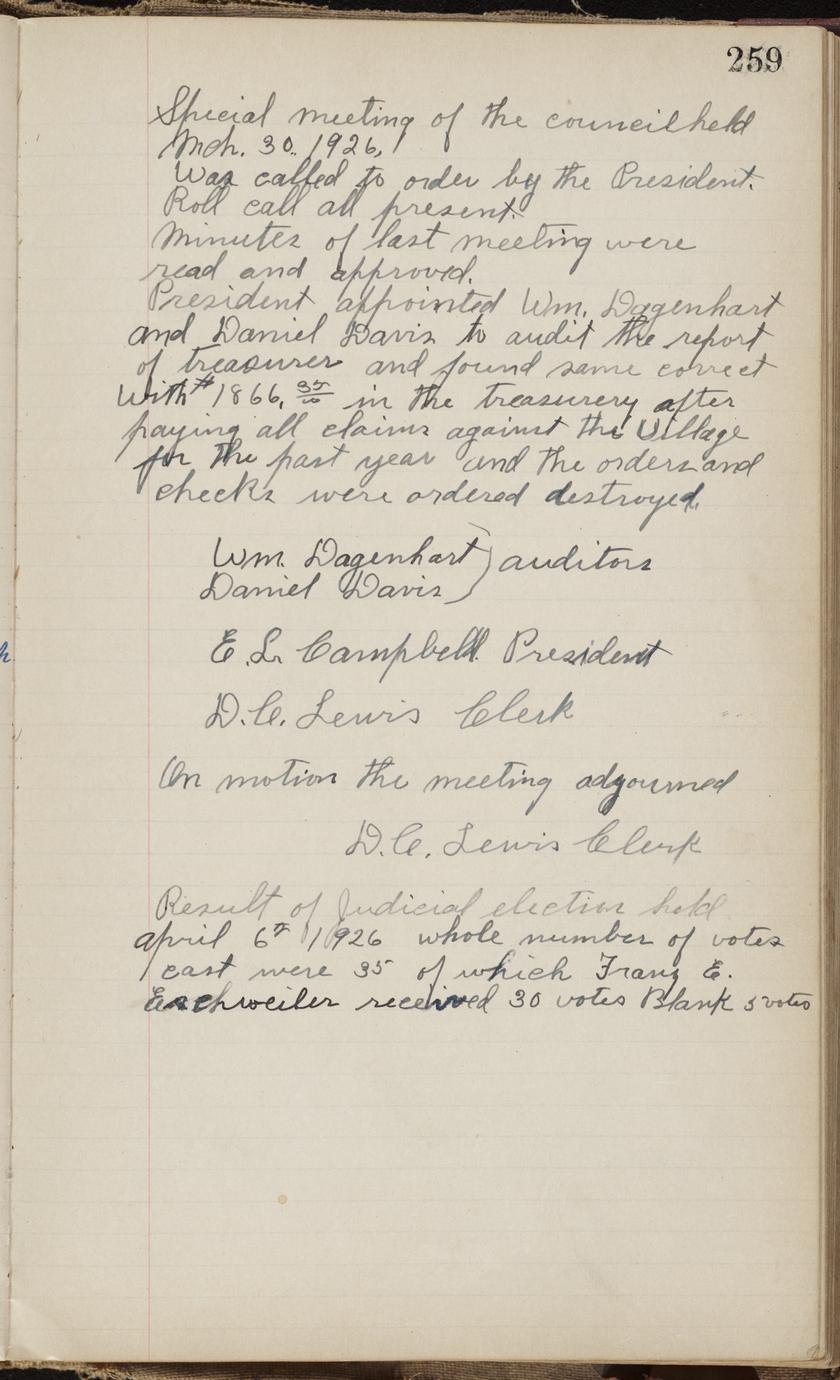 259
Special meeting of the council held
Mch. 30. 1926,
Was called to order by the President.
Roll call all present.
Minutes of last meeting were
read and approved.
President appointed Wm. Dagenhart
and Daniel Davis to audit the report
of treasurer and found same correct
with $1866, 35/100 in the treasurery after
paying all claims against the Village
for the past year and the orders and
checks were ordered destroyed.
Wm. Dagenhart } auditors
Daniel Davis
E. L. Campbell. President
D. C. Lewis Clerk
On motion the meeting adyourned
D. C. Lewis Clerk
Result of Judicial election held
april 6th 1926 whole number of votes
cast were 35 of which Franz E.
Eschweiler received 30 votes Blank 5 votes